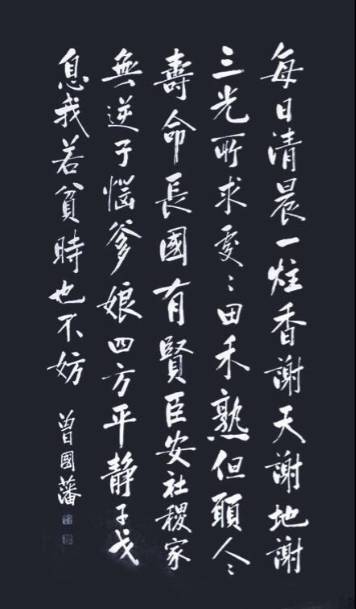 每日清晨一炷香謝天謝地謝
三光所求處〻田禾熟但願人〻
壽命長國有賢臣安社稷家
無逆子惱爹娘四方平靜干戈
息我若貧時也不妨
曾國藩